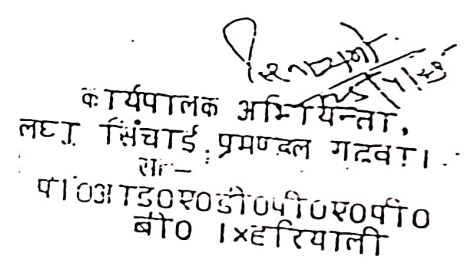 कार्यपालक अभियन्ता,
लघु सिंचाई, प्रमण्डल गढवा।
सह-
पी०आई०ए०डी०पी०ए०पी०
बी० ।×हरियाली